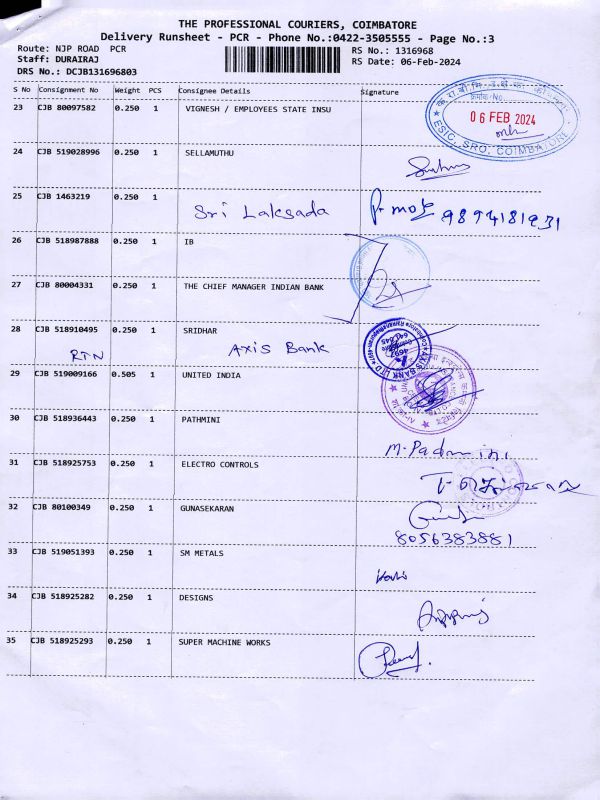 THE PROFESSIONAL COURIERS, COIMBATORE
Delivery Runsheet - PCR - Phone No.:0422-3505555 - Page No.:3
Route: NJP ROAD PCR
RS No.: 1316968
Staff: DURAIRAJ
RS Date: 06-Feb-2024
DRS No.: DCJB131696803
S No Consignment No Weight PCS Consignee Details Signature
23 CJB 80097582 0.250 1 VIGNESH / EMPLOYEES STATE INSU
06 FEB 2024
ESIC, SRO, COIMBATORE
24 CJB 519028996 0.250 1 SELLAMUTHU
25 CJB 1463219 0.250 1
Sri Laksada
9894181931
26 CJB 518987888 0.250 1 IB
27 CJB 80004331 0.250 1 THE CHIEF MANAGER INDIAN BANK
28 CJB 518910495 0.250 1 SRIDHAR
RTN Axis Bank
AXIS BANK LTD
4697
29 CJB 519009166 0.505 1 UNITED INDIA
30 CJB 518936443 0.250 1 PATHMINI
M. Padmini
31 CJB 518925753 0.250 1 ELECTRO CONTROLS
32 CJB 80100349 0.250 1 GUNASEKARAN
8056383881
33 CJB 519051393 0.250 1 SM METALS
34 CJB 518925282 0.250 1 DESIGNS
35 CJB 518925293 0.250 1 SUPER MACHINE WORKS